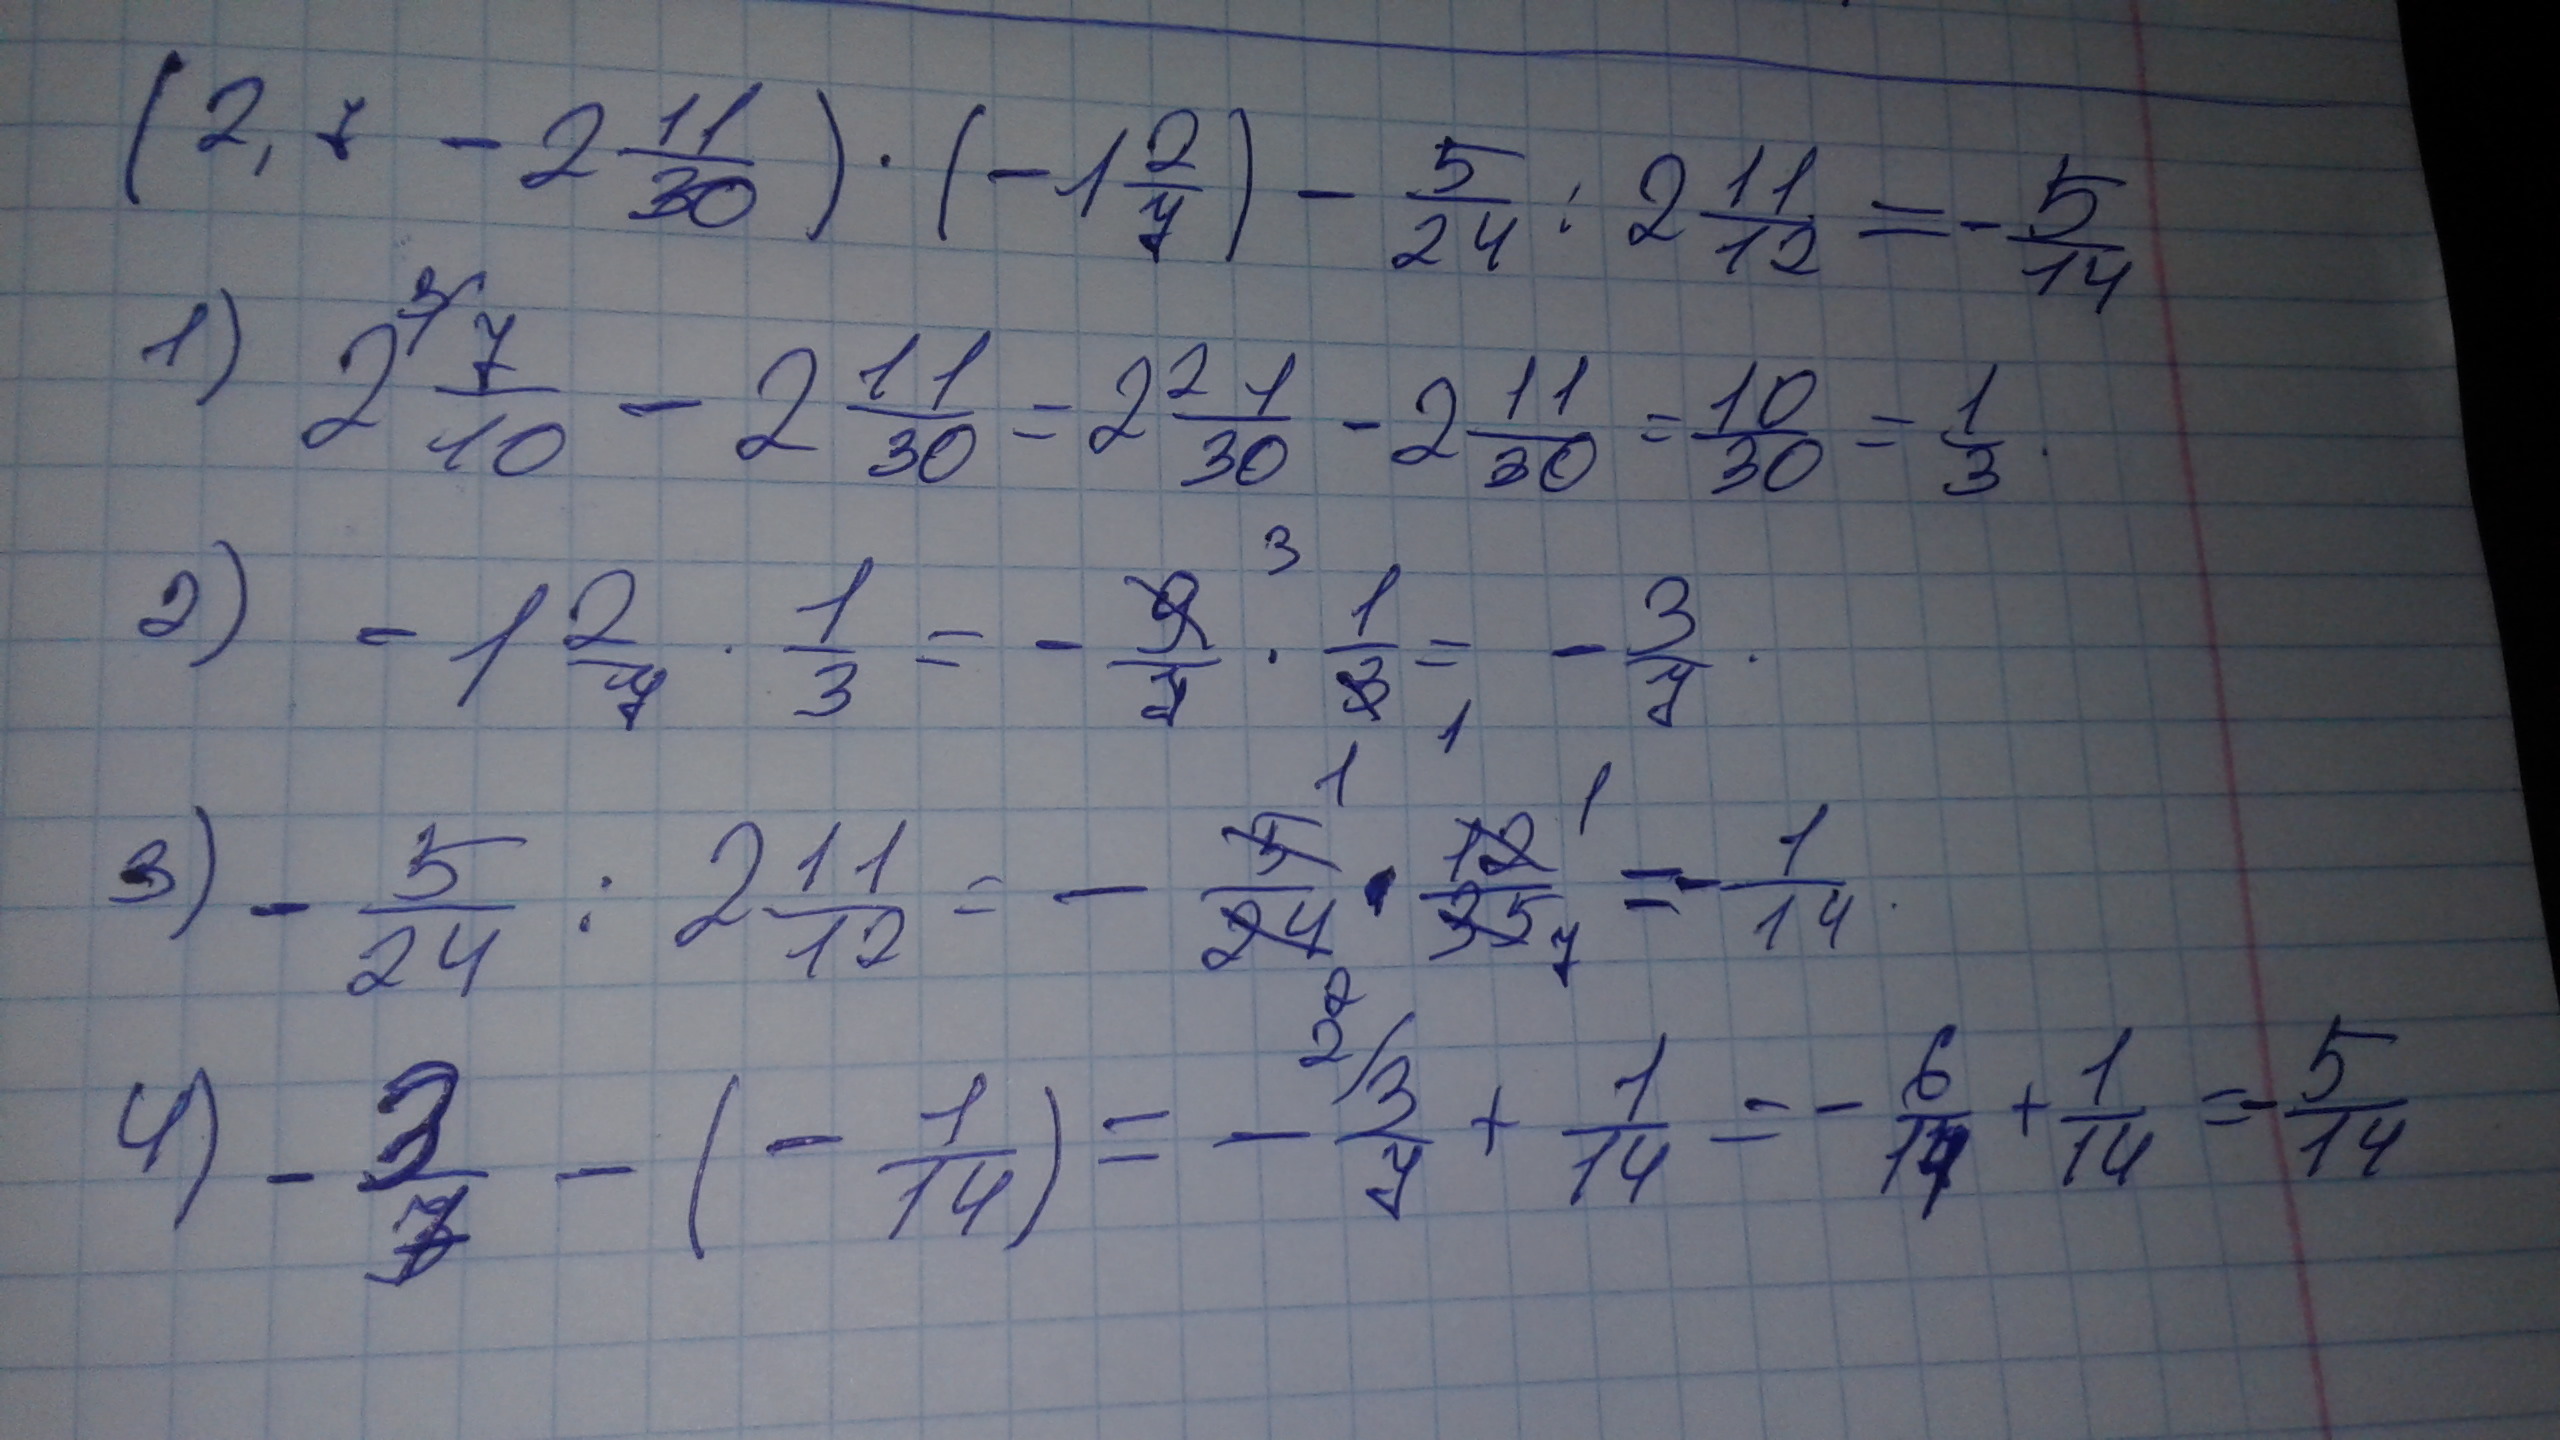 (2,7 - 2 11/30) · (-1 2/7) - 5/24 : 2 11/12 = - 5/14
1) 2 7/10 - 2 11/30 = 2 21/30 - 2 11/30 = 10/30 = 1/3.
2) - 1 2/7 · 1/3 = - 9/7 · 1/3 = - 3/7.
3) - 5/24 : 2 11/12 = - 5/24 · 12/35 = - 1/14.
4) - 3/7 - (- 1/14) = - 3/7 + 1/14 = - 6/14 + 1/14 = - 5/14